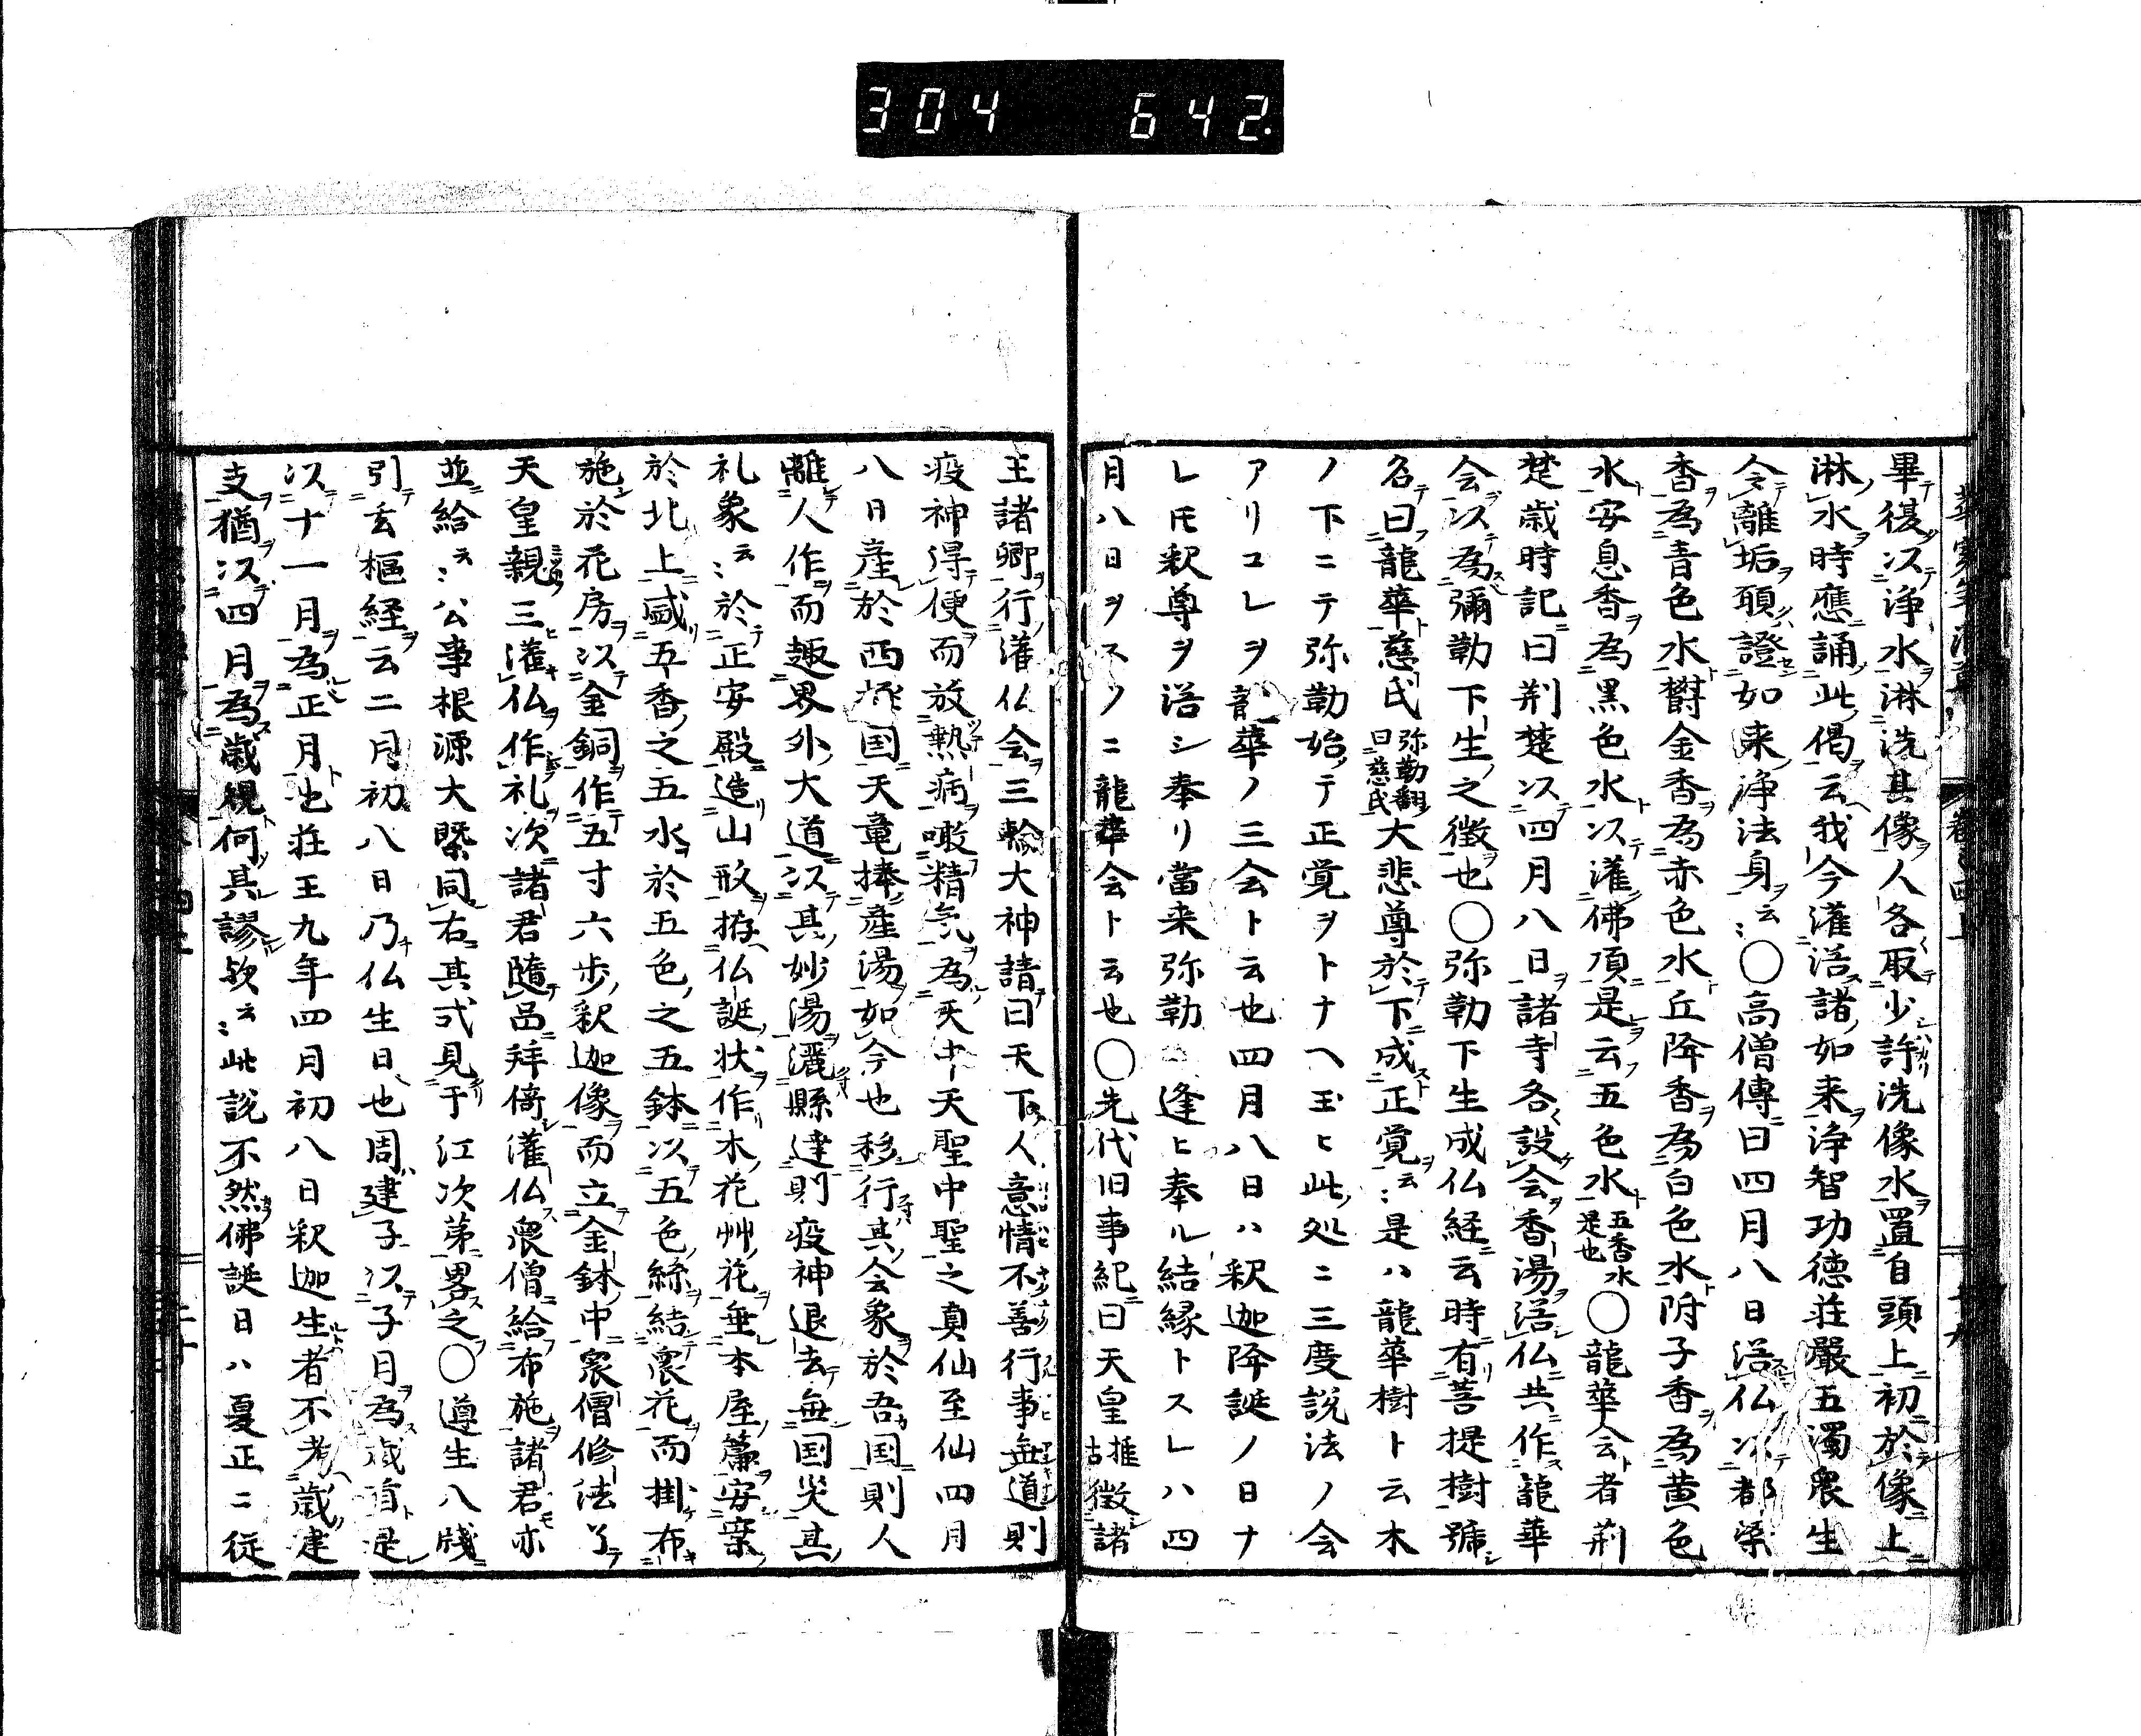 304 642
畢復以浄水淋洗其像人各取少許洗像水置自頭上初於像上
淋水時應誦此偈云我今灌浴諸如来浄智功徳荘嚴五濁衆生
令離垢願證如来浄法身云〻〇高僧傳曰四月八日浴仏以都梁
香為青色水欝金香為赤色水丘降香為白色水附子香為黄色
水安息香為黒色水以灌佛頂是云五色水五香水是也〇龍華会者荊
楚歳時記曰荊楚以四月八日諸寺各設会香湯浴仏共作龍華
会以為彌勒下生之徴也〇弥勒下生成仏経云時有菩提樹號
名曰龍華慈氏弥勒翻曰慈氏大悲尊於下成正覚云〻是ハ龍華樹ト云木
ノ下ニテ弥勒始テ正覚ヲトナヘ玉ヒ此処ニ三度説法ノ会
アリコレヲ龍華ノ三会ト云也四月八日ハ釈迦降誕ノ日ナ
レ𪜈釈尊ヲ浴シ奉リ當来弥勒ニ逢ヒ奉ル結縁トスレハ四
月八日ヲスノニ龍華会ト云也〇先代旧事紀曰天皇推古徴諸
王諸卿行灌仏会三輪大神請曰天下人意情不善行事無道則
疫神得便而放熱病噉精気為夭中天聖中聖之真仙至仙四月
八日産於西極国天竜捧産湯如今也移行其会象於吾国則人
離人作而趣界外大道以其妙湯灑縣達則疫神退去無国災其
礼象云〻於正安殿造山形拵仏誕状作木花艸花垂本屋簾安案
於北上盛五香之五水於五色之五鉢以五色絲結衆花而掛布
施於花房以金銅作五寸六歩釈迦像而立金鉢中衆僧修法了
天皇親三灌仏作礼次諸君随品拜倚灌仏衆僧給布施諸君亦
並給云〻公事根源大槩同右其式見于江次第畧之〇遵生八牋
引玄樞経云二月初八日乃仏生日也周建子以子月為歳首是
以十一月為正月也荘王九年四月初八日釈迦生者不考歳建
支猶以四月為歳視何其謬欤云〻此説不然佛誕日ハ夏正ニ従